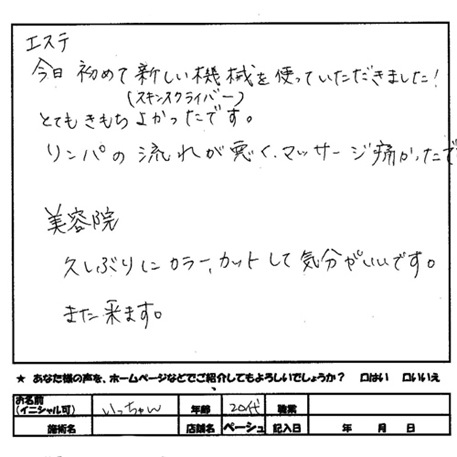 エステ
今日 初めて 新しい機械を使っていただきました!
(スキンスクライバー)
とてもきもちよかったです。
リンパの流れが悪く、マッサージ痛かったで
美容院
久しぶりにカラー、カットして気分がいいです。
また来ます。
★ あなた様の声を、ホームページなどでご紹介してもよろしいでしょうか? □はい □いいえ
お名前 (イニシャル可) いっちゃん 年齢 20代 職業
施術名 店舗名 ペーシュ 記入日 年 月 日